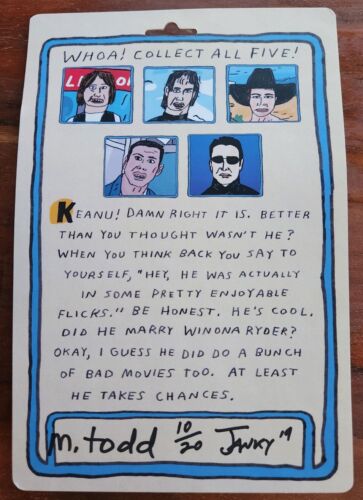 WHOA! COLLECT ALL FIVE!
KEANU! DAMN RIGHT IT IS. BETTER
THAN YOU THOUGHT WASN'T HE?
WHEN YOU THINK BACK YOU SAY TO
YOURSELF, "HEY, HE WAS ACTUALLY
IN SOME PRETTY ENJOYABLE
FLICKS." BE HONEST. HE'S COOL.
DID HE MARRY WINONA RYDER?
OKAY, I GUESS HE DID DO A BUNCH
OF BAD MOVIES TOO. AT LEAST
HE TAKES CHANCES.
m. todd 10/20 JANKY '19